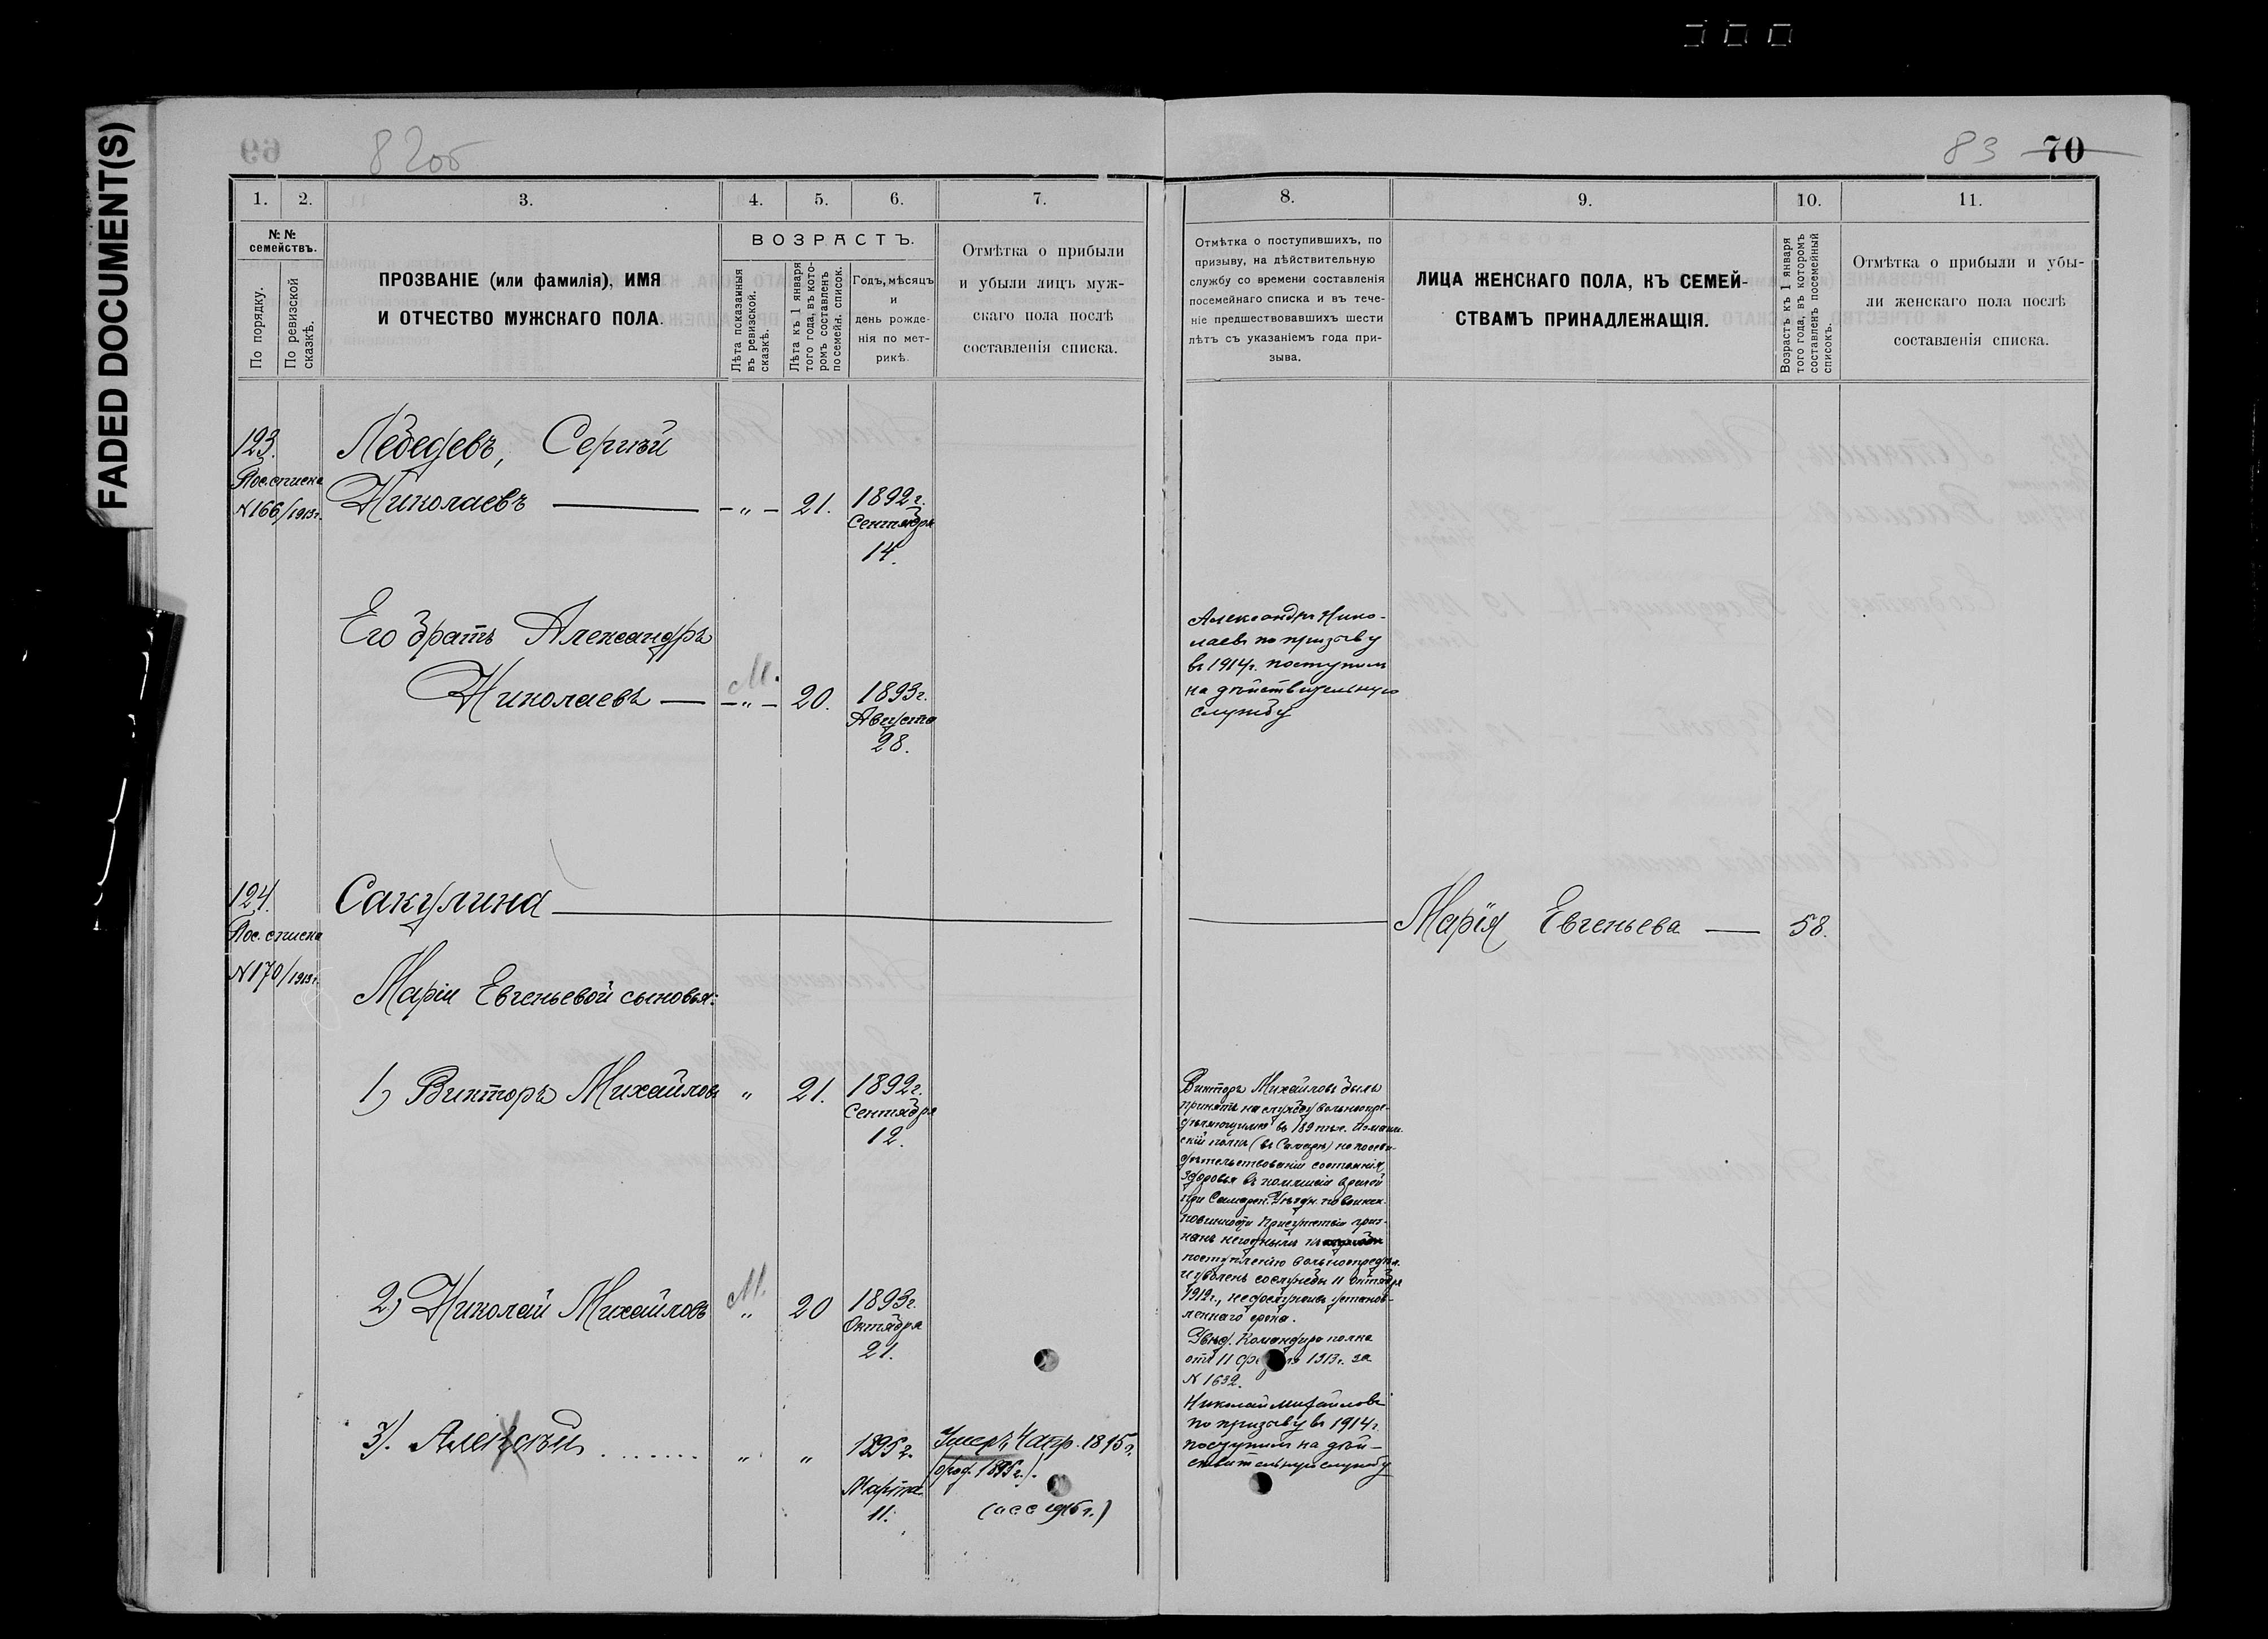 FADED DOCUMENT(S)
82об
83 70
1. 2. 3. 4. 5. 6. 7.
№ №
семействъ.
По порядку.
По ревизской
сказкѣ.
ПРОЗВАНІЕ (или фамилія), ИМЯ
И ОТЧЕСТВО МУЖСКАГО ПОЛА.
ВОЗРАСТЪ.
Лѣта показанныя
въ ревизской.
сказкѣ.
Лѣта къ 1 января
того года, въ кото-
ромъ составленъ
посемейн. список.
Годъ, мѣсяцъ
и
день рожде-
нія по мет-
рикѣ.
Отмѣтка о прибыли
и убыли лицъ муж-
скаго пола послѣ
составленія списка.
123. Лебедевъ, Сергѣй
Пос. списка
№166/1913г. Николаевъ — „ — 21. 1892г.
Сентября
14.
Его братъ Александръ
Николаевъ — М. — „ — 20. 1893г.
Августа
28.
124. Сакулина
Пос. списка
№170/1913г.
Маріи Евгеньевой сыновья:
1) Викторъ Михайловъ „ 21. 1892г.
Сентября
12.
2) Николай Михайловъ М. „ 20 1893г.
Октября
21.
3). Алексѣй . . . . . . . „ „ 1895г. Умеръ 4 апр. 1895г.
Марта
11.
8. 9. 10. 11.
Отмѣтка о поступившихъ, по
призыву, на дѣйствительную
службу со времени составленія
посемейнаго списка и въ тече-
ніе предшествовавшихъ шести
лѣтъ съ указаніемъ года при-
зыва.
ЛИЦА ЖЕНСКАГО ПОЛА, КЪ СЕМЕЙ-
СТВАМЪ ПРИНАДЛЕЖАЩІЯ.
Возрастъ къ 1 января
того года, въ которомъ
составленъ посемейный
списокъ.
Отмѣтка о прибыли и убы-
ли женскаго пола послѣ
составленія списка.
Александръ Нико-
лаевъ по призыву
въ 1914г. поступилъ
на дѣйствительную
службу
Марія Евгеньева — 58.
Викторъ Михайловъ былъ
принятъ на службу вольноопре-
дѣляющимся въ 189 пѣх. Измаил-
скій полкъ (въ Самарѣ) но по осви-
дѣтельствованіи состоянія
здоровья въ комиссіи врачей
при Самарск. Уѣздн. по воинск.
повинности Присутствіи приз-
нанъ негоднымъ къ
поступленію вольноопредѣл.
и уволенъ со службы 11 октября
1912г., не дослуживъ установ-
леннаго срока.
Увѣд. Командира полка
отъ 11 1913г. за
№ 1632.
Николай Михайловъ
по призыву въ 1914г.
поступилъ на дѣй-
ствительную службу